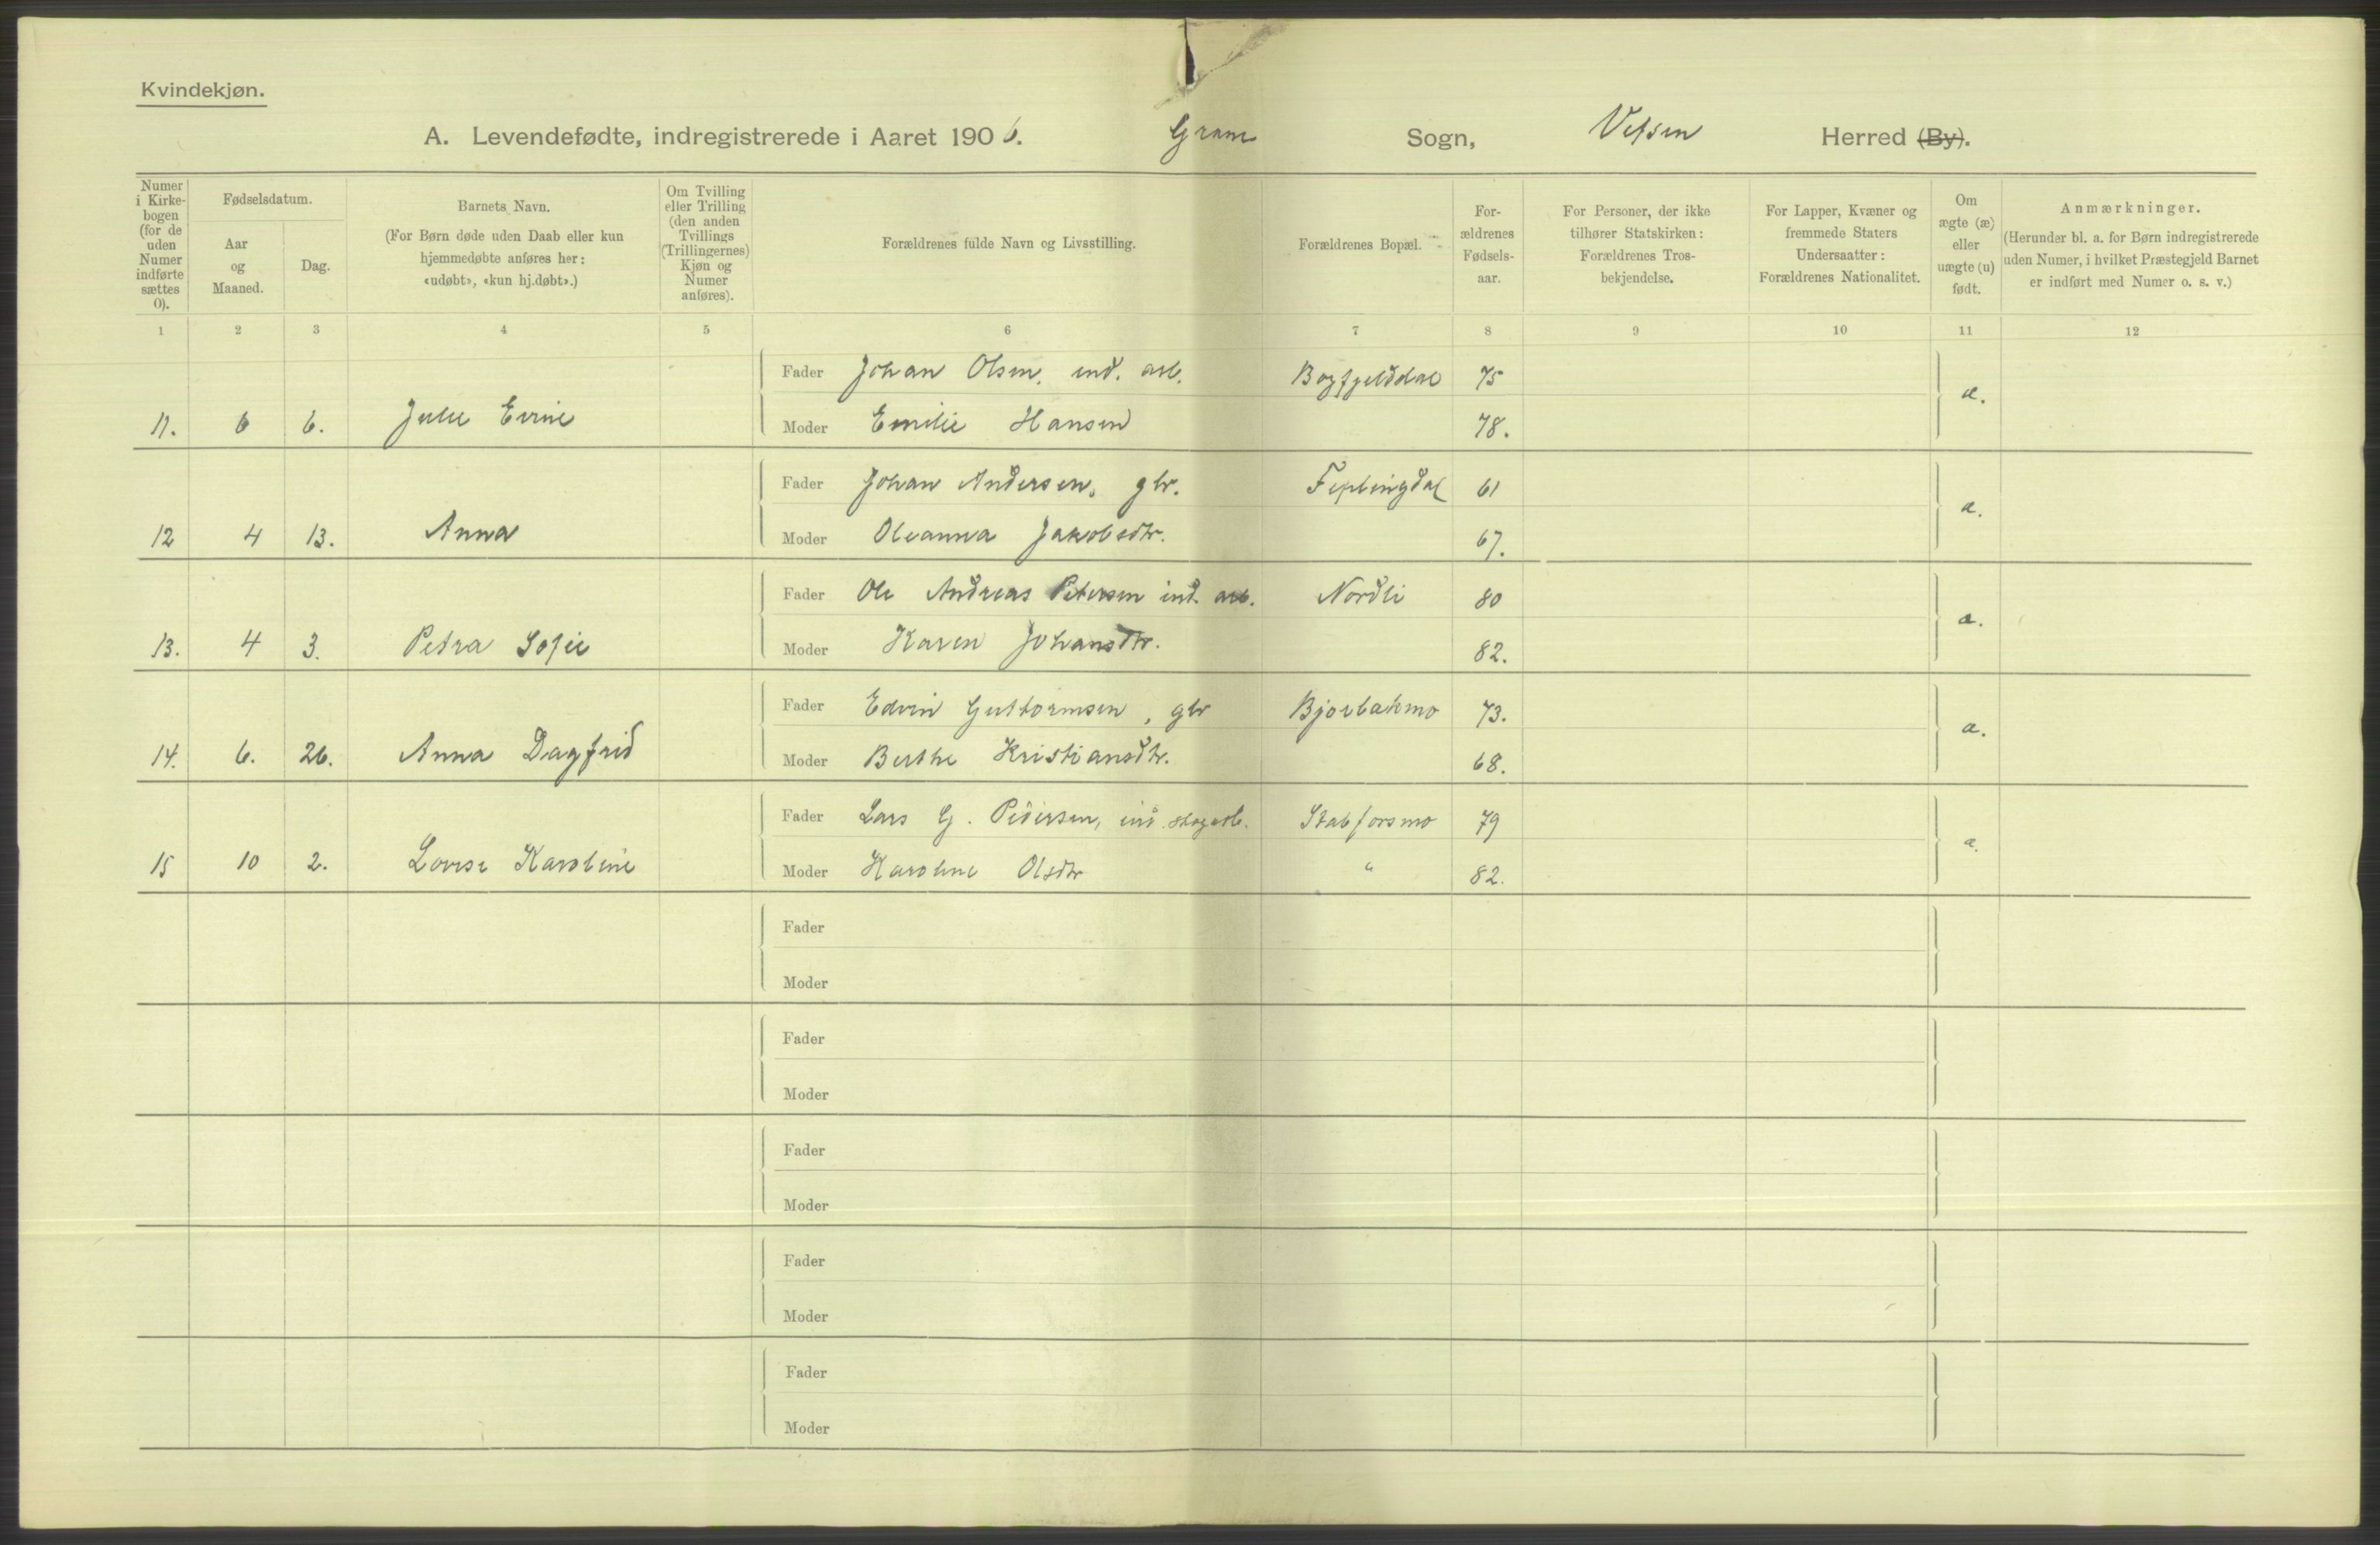 Kvindekjøn.
A. Levendefødte, indregistrerede i Aaret 1906. Grane Sogn, Vefsen Herred (By).
Numer i Kirke-bogen (for de uden Numer indførte sættes 0).
Fødselsdatum.
Aar og Maaned.
Dag.
Barnets Navn.
(For Børn døde uden Daab eller kun
hjemmedøbte anføres her:
«udøbt», «kun hj.døbt».)
Om Tvilling
eller Trilling
(den anden
Tvillings
(Trillingernes)
Kjøn og
Numer
anføres).
Forældrenes fulde Navn og Livsstilling.
Forældrenes Bopæl.
For-
ældrenes
Fødsels-
aar.
For Personer, der ikke
tilhører Statskirken:
Forældrenes Tros-
bekjendelse.
For Lapper, Kvæner og
fremmede Staters
Undersaatter:
Forældrenes Nationalitet.
Om
ægte (æ)
eller
uægte (u)
født.
Anmærkninger.
(Herunder bl. a. for Børn indregistrerede
uden Numer, i hvilket Præstegjeld Barnet
er indført med Numer o. s. v.)
1 2 3 4 5 6 7 8 9 10 11 12
Fader Johan Olsen, ind. arb. 75
æ.
11. 6 6. Julie Moder Emilie Hansen 78.
Fader Johan Andersen, gbr. 61
æ.
12 4 13. Anna Moder Oleanna Jakobsdtr. 67.
Fader Ole Andreas Petersen ind. arb. Nordli 80
æ.
13. 4 3. Petra Sofie Moder Karen Johansdtr. 82.
Fader Edvin Guttormsen, gbr Bjorbækmo 73.
æ.
14. 6. 26. Anna Dagfrid Moder Berthe Kristiansdtr. 68.
Fader Lars G. Pedersen, ind. skogarb. Stabforsmo 79
æ.
15 10 2. Lovise Karoline Moder Karoline Olsdtr " 82.
Fader
Moder
Fader
Moder
Fader
Moder
Fader
Moder
Fader
Moder